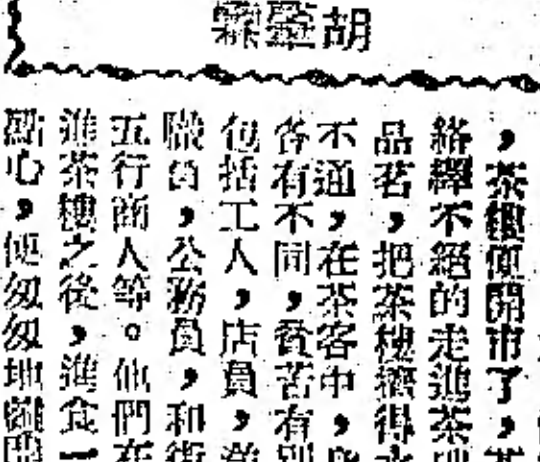 胡
，茶樓便開市了，
絡繹不絕的走進茶
品茗，把茶樓擠得水
不通，在茶客中，
各有不同，貧苦有別
包括工人，店員，
職員，公務員，和街
五行商人等。他們在
進茶樓之後，進食一
點心，便匆匆地離開